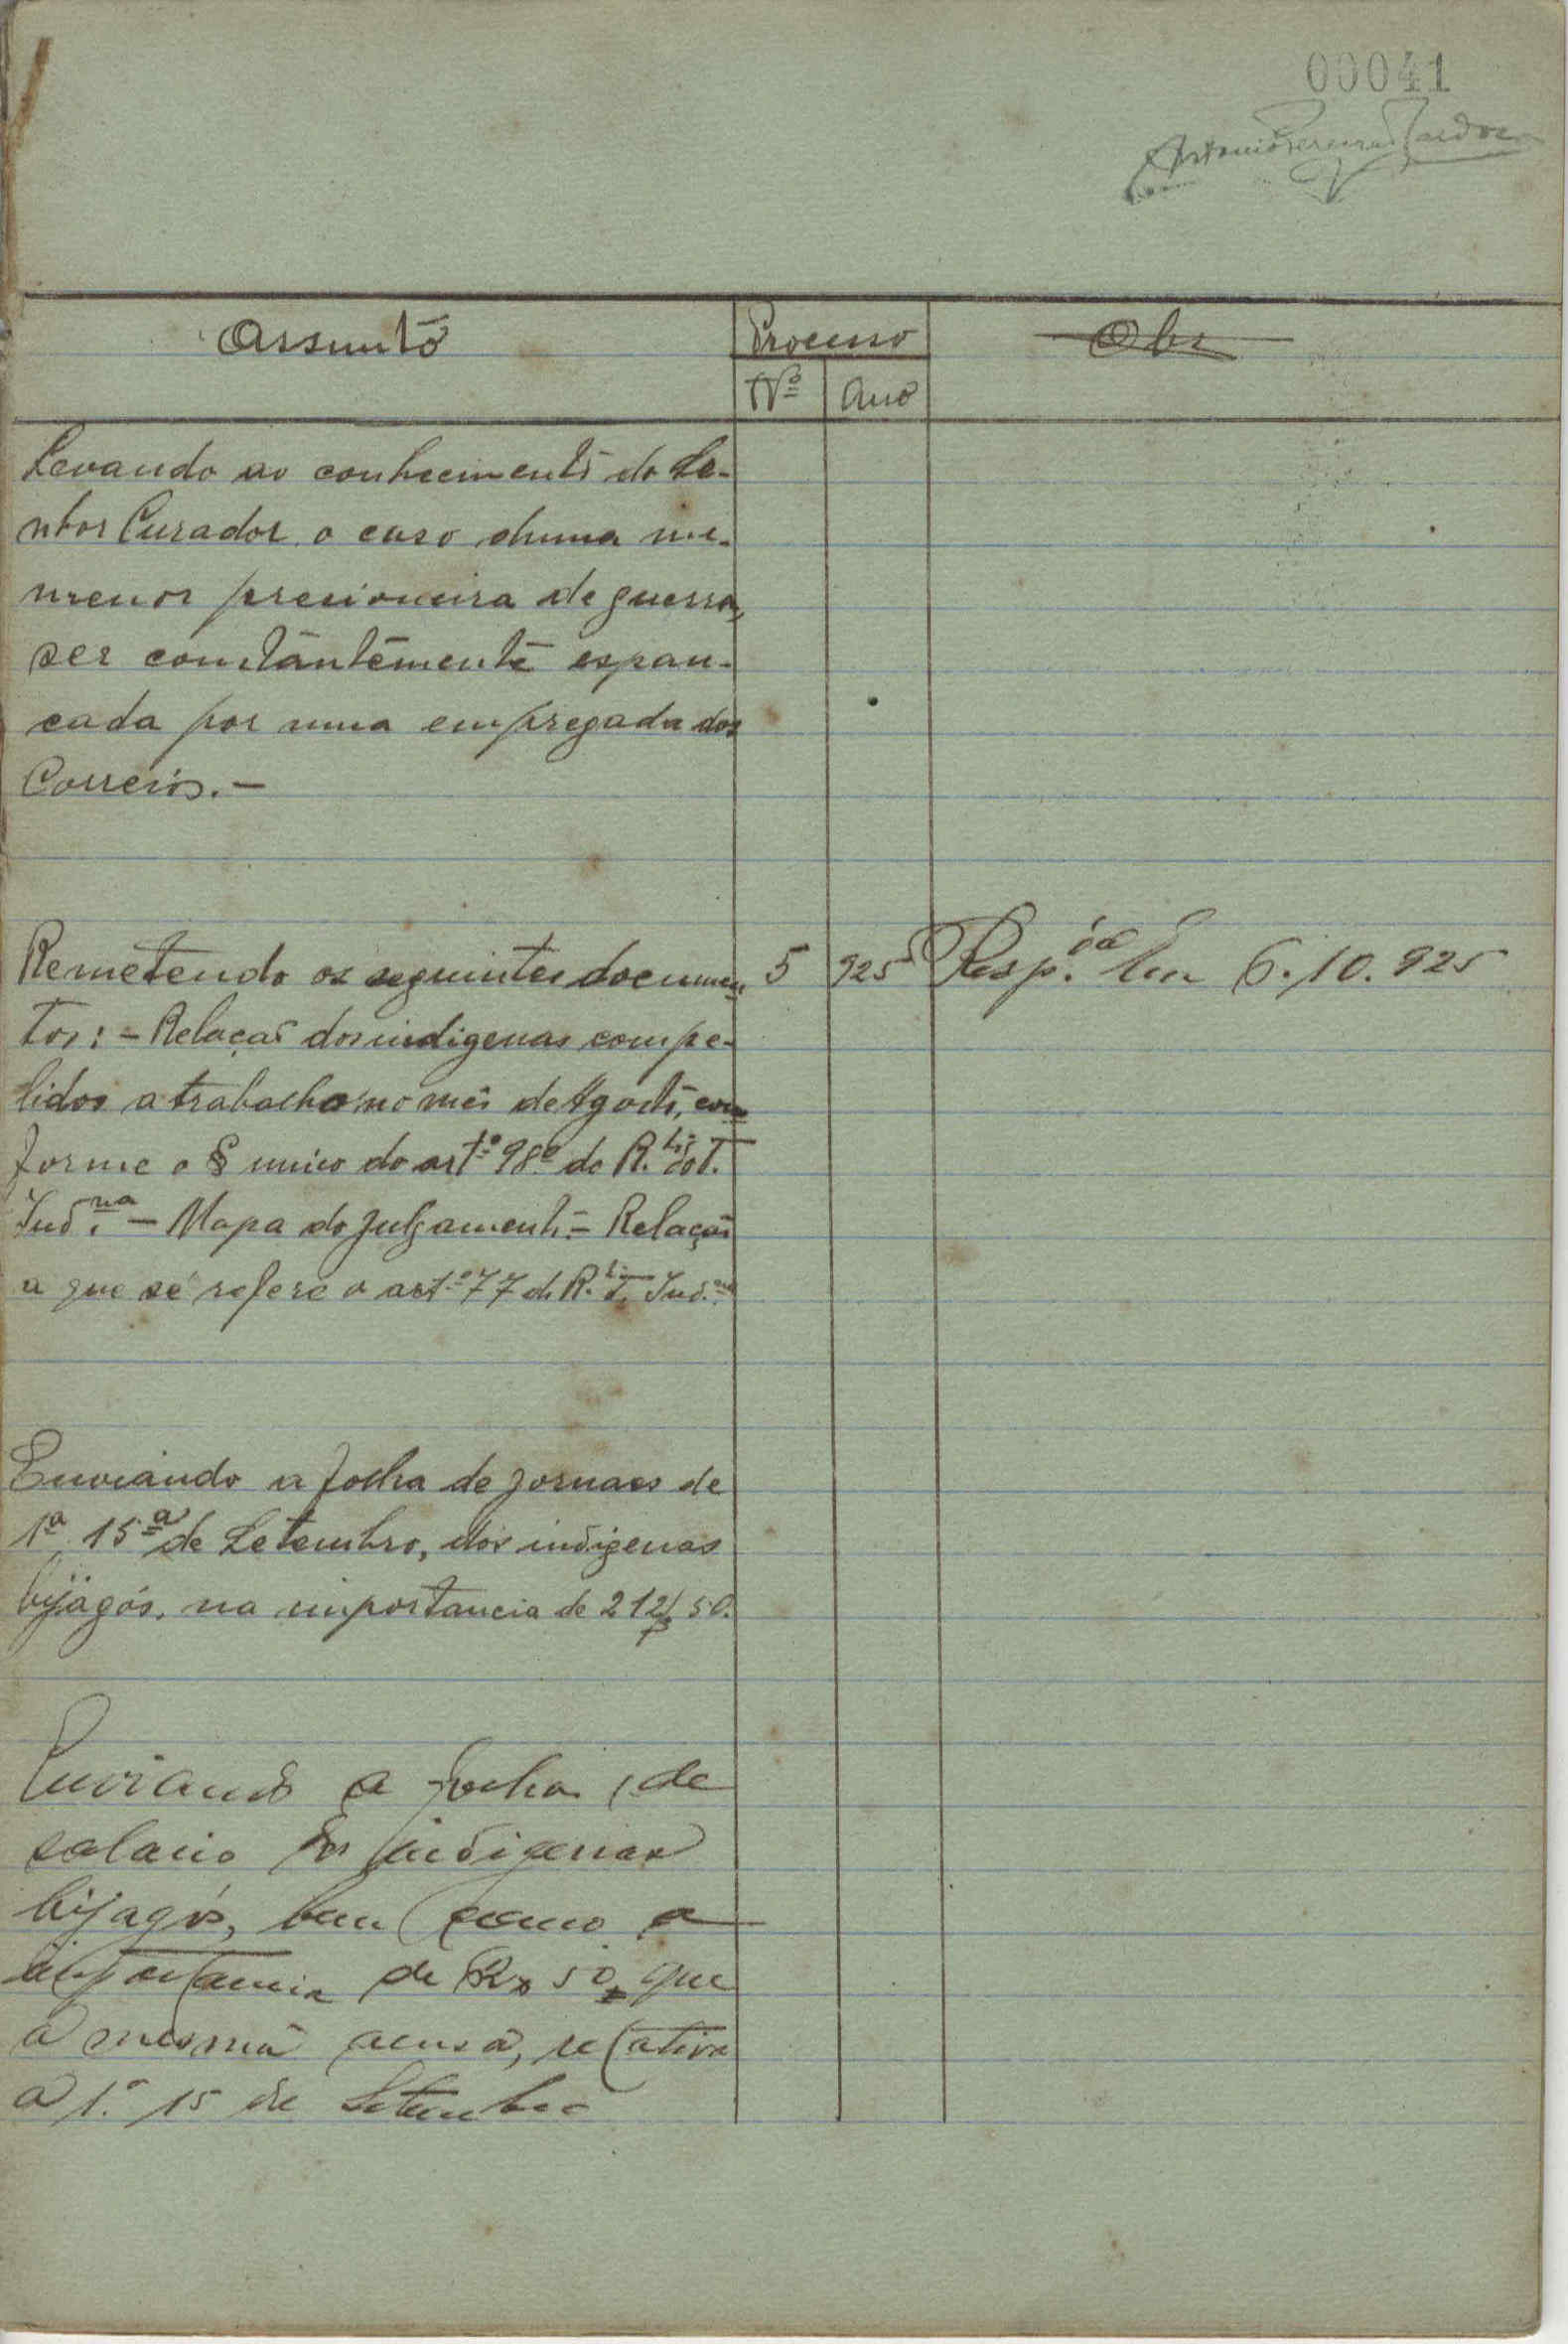 00041
Antonio Pereira Cardoso
Assunto
Processo
Obs
Nº
Ano
Levando ao conhecimento do Se-
nhor Curador o caso duma me-
menor presioneira de guerra,
ser constantemente espan-
cada por uma empregada dos
Correios.-
Remetendo os seguintes documen
5
925
Resp.da em 6.10.925
tos: - Relação dos indigenas compe-
lidos a trabalho no mês de Agosto, con
forme o § unico do artº 98º do R. do T.
Ind.na - Mapa do julgamento - Relação
a que se refere o artº 77 do R. T. Ind.na
Enviando a folha de jornaes de
1ª 15ª de Setembro, dos indigenas
bijagós, na importancia de 212$50.
Enviando a folha de
salario dos indigenas
bijagós, bem como a
importancia de 50$ que
a mesma acusa, relativa
a 1ª 15 de Setembro